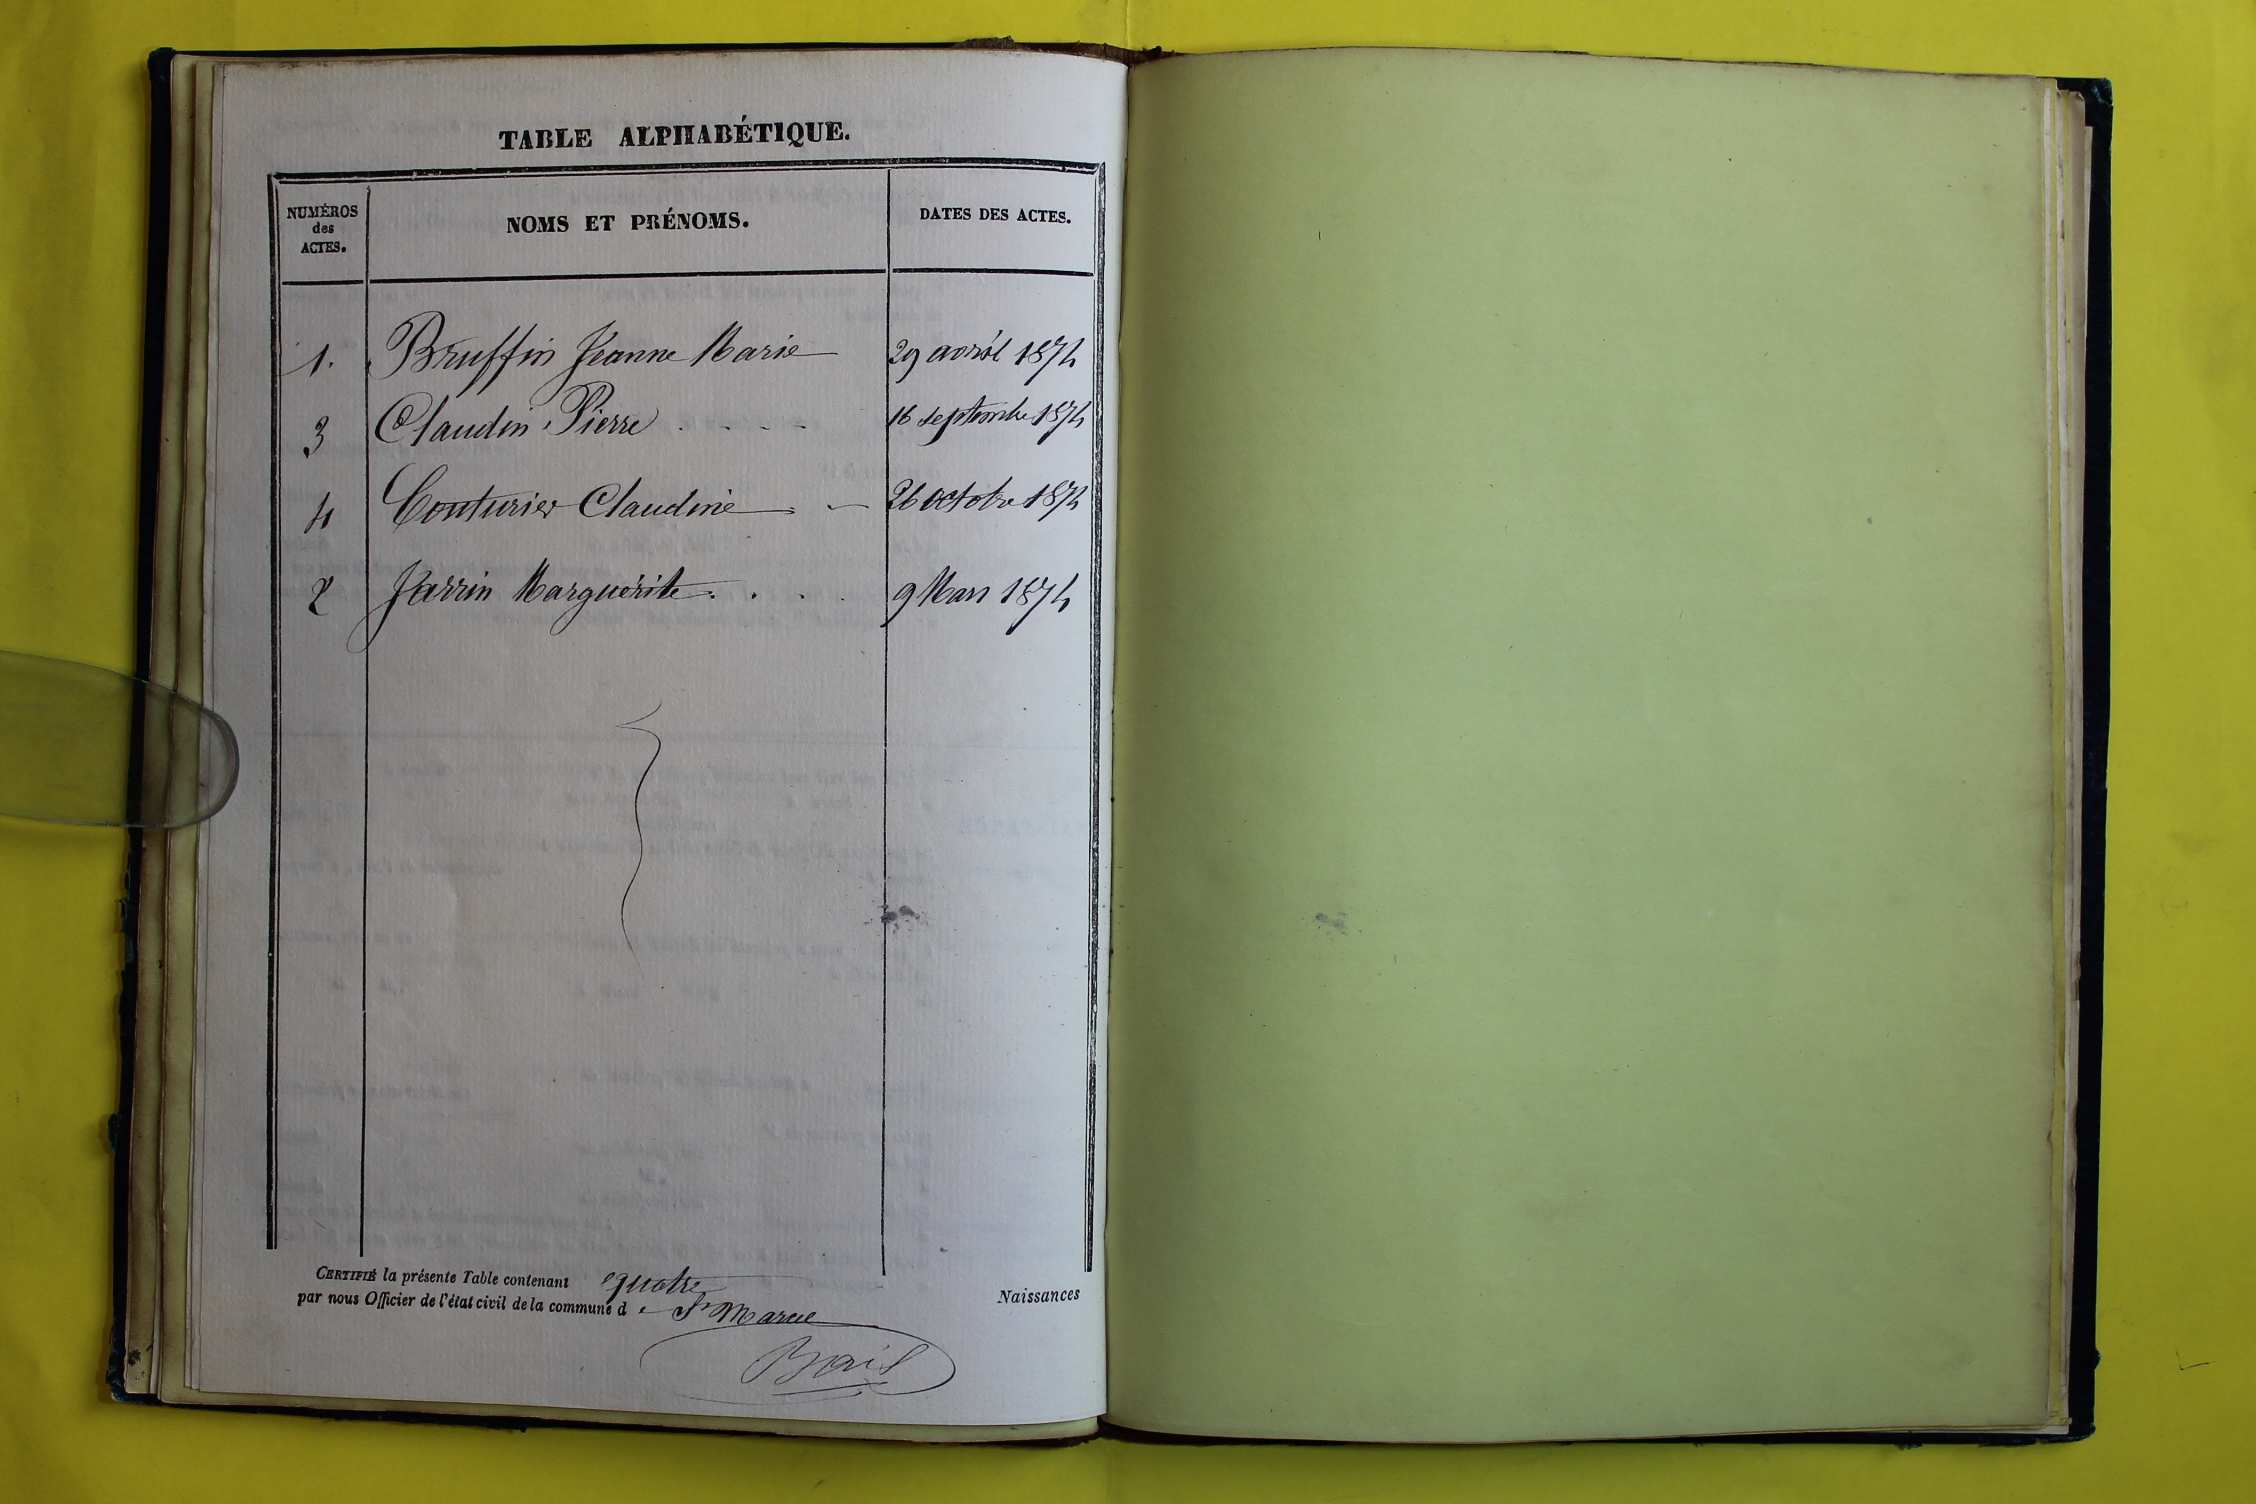 TABLE ALPHABÉTIQUE.
NUMÉROS des ACTES. NOMS ET PRÉNOMS. DATES DES ACTES.
1. Bruffin Jeanne Marie 29 avril 1874
3 Claudin Pierre 16 septembre 1874
4 Couturier Claudine 26 octobre 1874
2 Jarrin Marguerite 9 Mars 1874
CERTIFIÉ la présente Table contenant quatre
par nous Officier de l'état civil de la commune d e St Marcel
Naissances